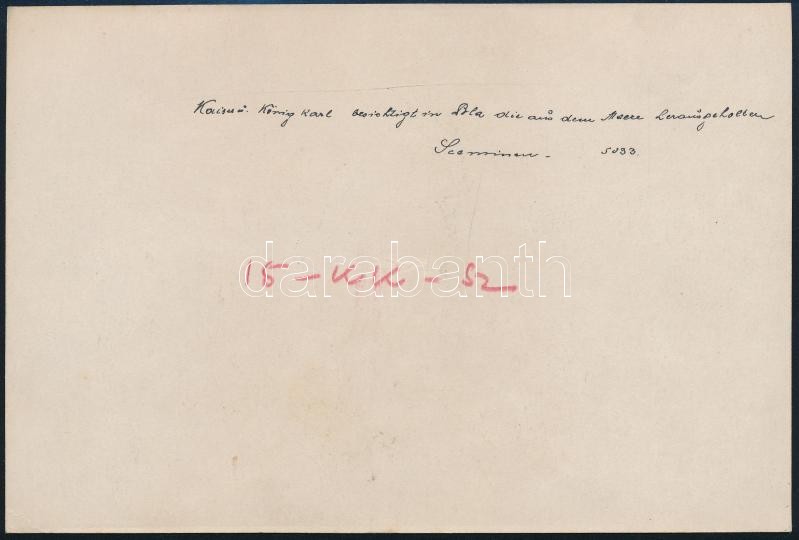 Kaiser u. König Karl besichtigt in Pola die aus dem Meere herausgeholten
Seeminen. 5033.
15-KuK-52
darabanth